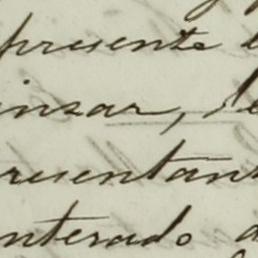 presente
inzar, de
resentant
nterado